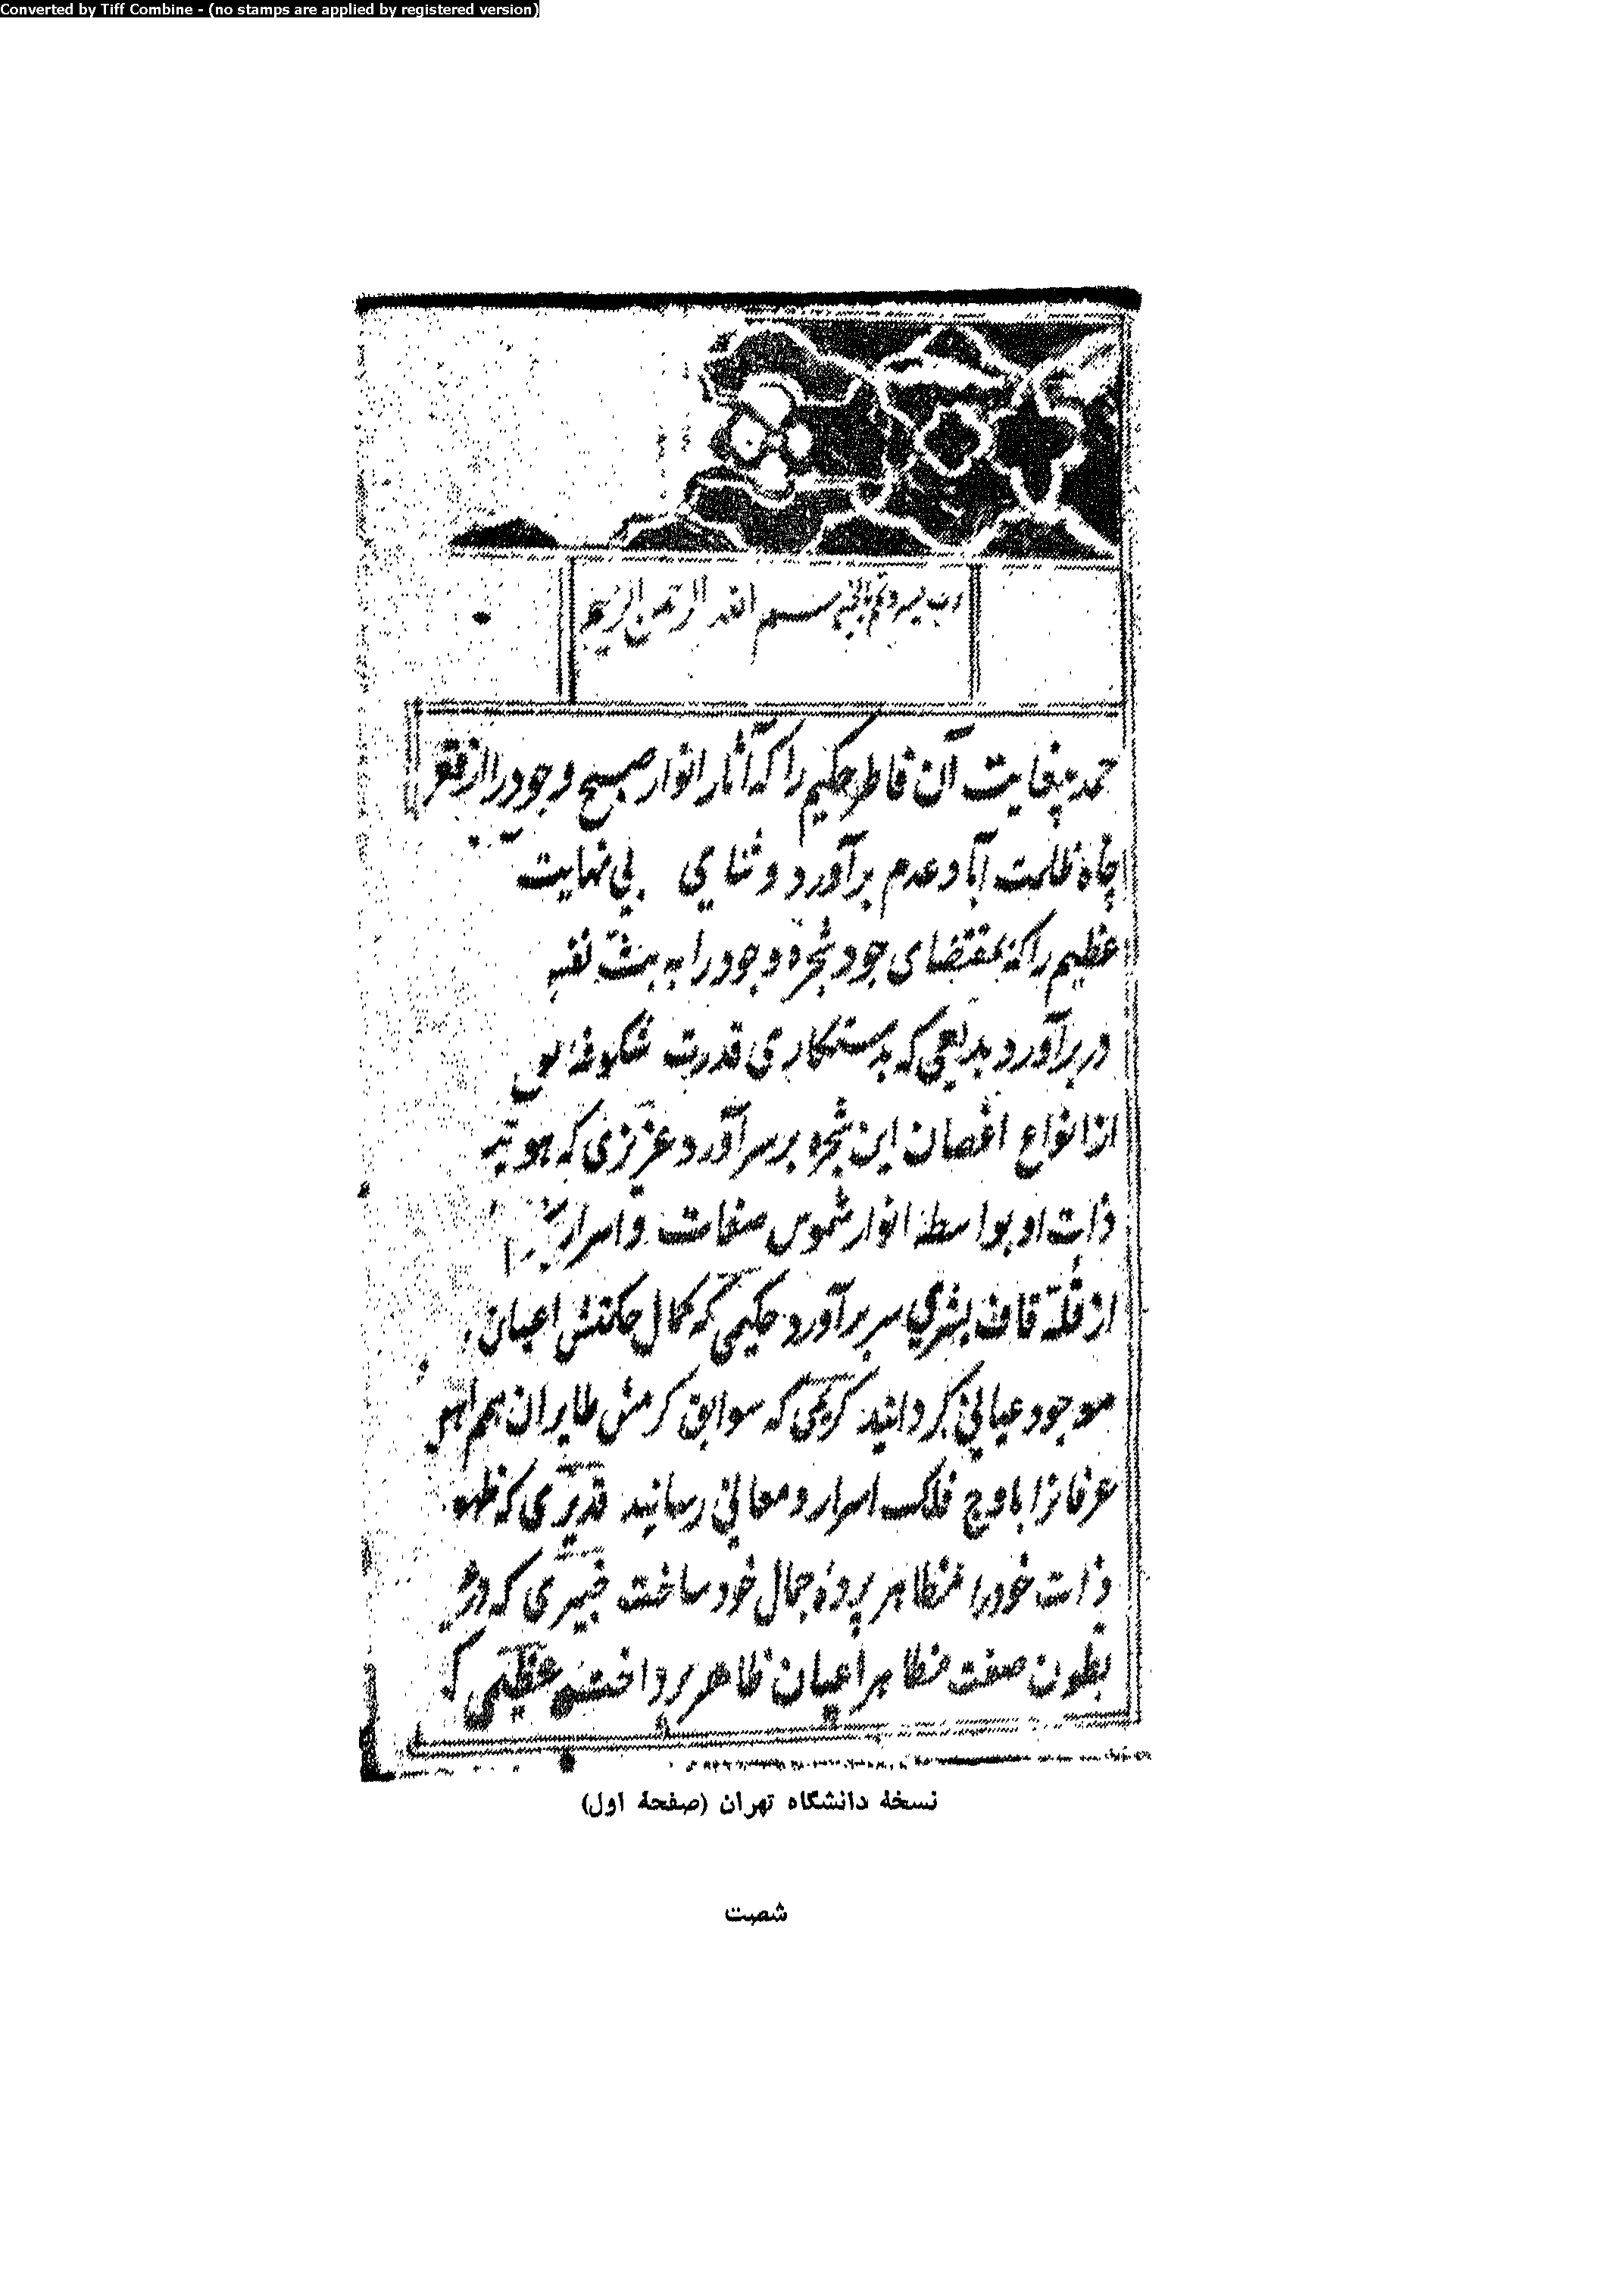 Converted by Tiff Combine - (no stamps are applied by registered version)
رب یسر و تمم بالخیر بسم الله الرحمن الرحیم
حمد بیغایت آن فاطر حکیم را که آثار انوار صبح وجود را از قعر
چاه ظلمت آباد عدم برآورد و ثنای بی نهایت
عظیم را که بمقتضای جود شجرهٔ وجود را به
در برآورد بدیعی که بدستکاری قدرت شکوفهٔ
از انواع اغصان این شجره برسر آورد عزیزی که هویت
ذات او بواسطهٔ انوار شموس صفات و اسرار
از قلهٔ قاف بشری سر برآورد حکیمی که کمال حکمتش اعیان
موجود عیانی گردانید کریمی که سوابق کرمش طایران همم اهل
عرفانرا باوج فلک اسرار و معانی رسانید قدیری که ظهور
ذات خود را مظاهر پردهٔ جمال خود ساخت خبیری که در
بطون صفت مظاهر اعیان ظاهر پرداخت عظیمی که
نسخهٔ دانشگاه تهران (صفحهٔ اول)
شصت